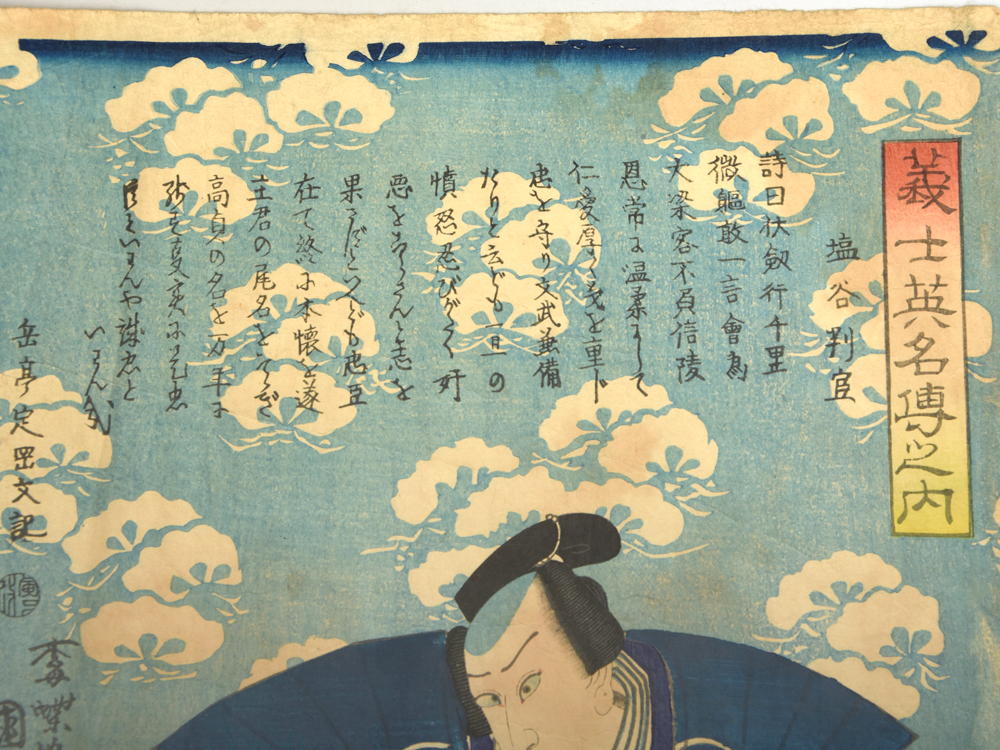 義士英名傳之内
塩谷判官
詩曰杖劔行千里
微軀敢一言會為
大梁客不負信陵
恩常に温柔にして
仁愛厚く義を重ド
忠を守り文武兼備
たりと云ども一旦の
憤怒忍びがたく奸
悪をうたんと志を
果さずといへども忠臣
在て終に本懐を遂
主君の尾名をそゝぎ
高貞の名を万年に
臣といはんや誠忠と
いはんか
岳亭定岡文記